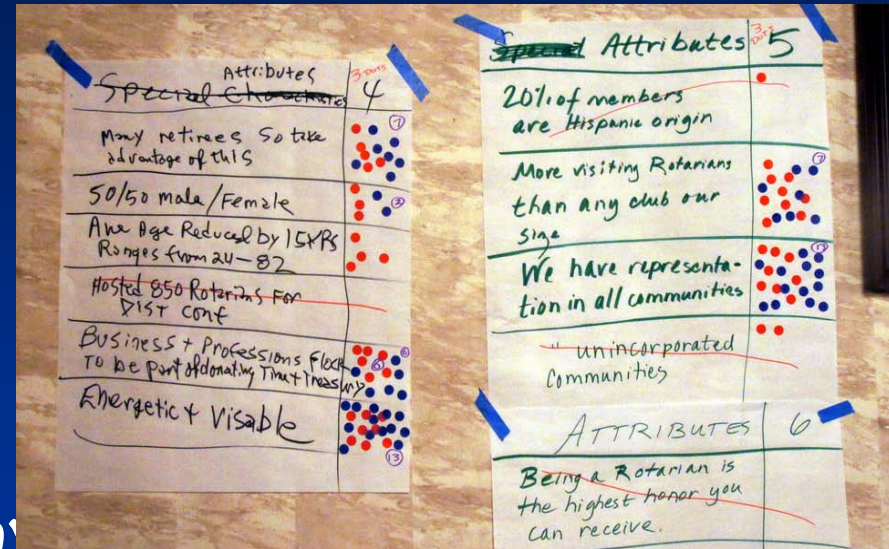 Attributes
3 DOTS
Special Characteristics 4
Many retirees So take
advantage of this
7
50/50 male/Female
Ave Age Reduced by 15YRS
Ranges from 24-82
Hosted 850 Rotarians For
DIST conf
Business + Professions Flock
To be part of donating Time + Treasury
Energetic + Visable
13
3 DOTS
Special Attributes 5
20% of members
are Hispanic origin
More visiting Rotarians
than any club our
size
7
We have representa-
tion in all communities
" unincorporated
Communities
ATTRIBUTES 6
Being a Rotarian is
the highest honor you
can receive.